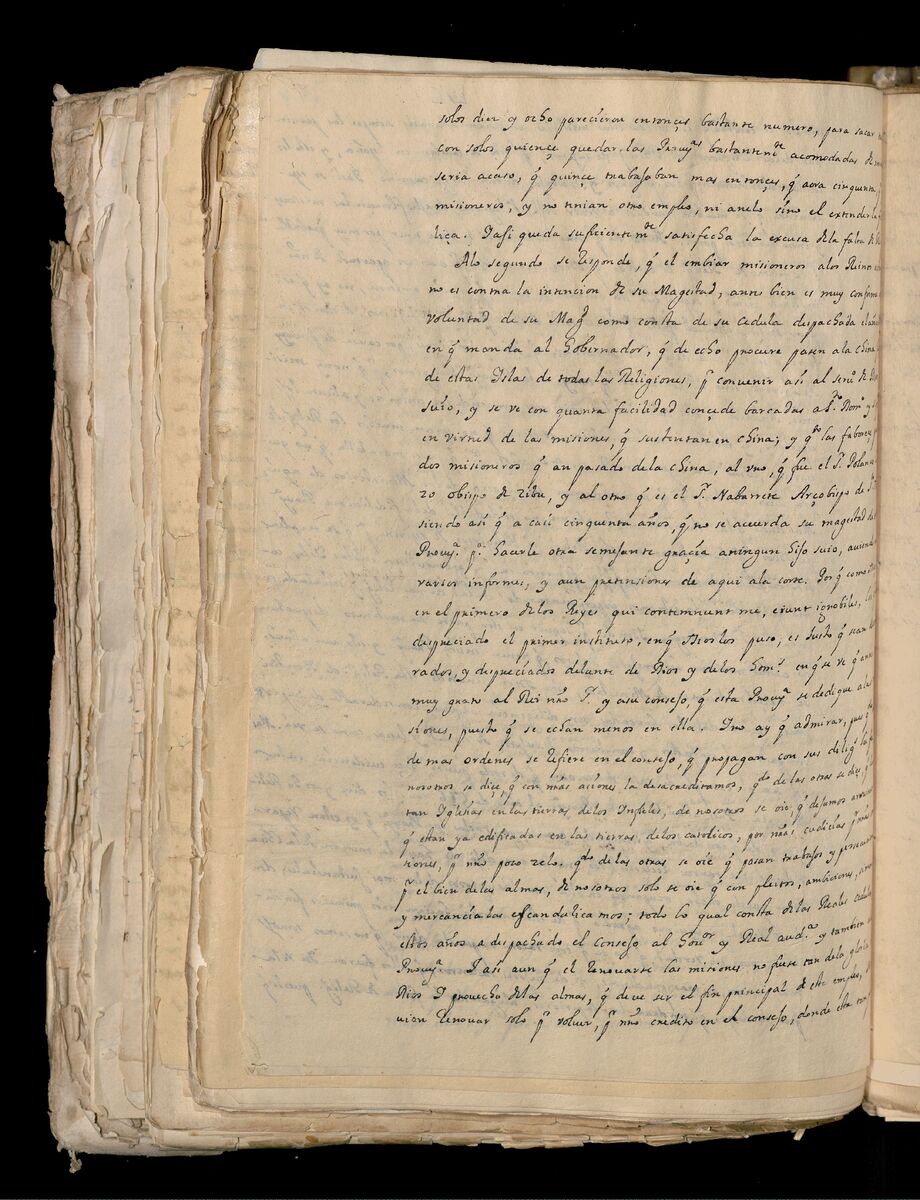 solos diez y ocho parecieron entonçes bastante numero, para sacar
con solos quiençe quedar las Prouas bastantemte acomodadas de
seria acaso, q̃ quinçe trabajaban mas entonçes, q̃ aora cinquenta,
misioneros, y no tinian otro empleo, ni anelo sino el extender la
lica. I asi queda suficientemte satisfecha la excusa de la falta de
Alo segundo se responde, q̃ el embiar misioneros alos Reinos
no es contra la intencion de su Magestad, antes bien es muy conforme
voluntad de su Magd como consta de su cedula despachada
en q̃ manda al Gobernador, q̃ de echo procure pasen ala China
de estas Islas de todas las Religiones, pr convenir asi al seruo de
suio, y se ve con quanta facilidad conçede barcadas a
en virtud de las misiones, q̃ sustentan en China; y qdo las
dos misioneros q̃ an pasado dela China, al vno, q̃ fue el P. Polan
zo obispo de Zibu, y al otro q̃ es el P. Nabarrete Arçobispo de
siendo asi q̃ a casi cinquenta años, q̃ no se acuerda su magestad de
Proua pa hacerle otra semejante graçia aningun hijo suio, auiendo
varios informes, y aun pretensiones de aqui ala corte. Porq̃ como
en el primero delos Reyes qui contemnunt me, erunt ignobiles,
despreciado el primer instituto, enq̃ Dios los puso, es justo q̃ sean
rados, y despreciados delante de Dios y delos homs. en q̃ se ve q̃
muy grato al Rei nro Sr. y asu consejo, q̃ esta Proua se dedique a
siones, puesto q̃ se echan menos en ella. I no ay q̃ admirar, pues
de mas ordenes se refiere en el consejo, q̃ propagan con sus
nosotros se dice, q̃ con nras açiones la desacreditamos, qdo de las otras se dice,
tan Iglesias en las tierras delos Infieles, de nosotros se oie, q̃ dejamos
q̃ estan ya edificadas en las tierras delos catolicos, por nras cudicias
siones, pr nro poco zelo. qdo de las otras se oie q̃ pasan trabajos y
pr el bien delas almas, de nosotros solo se oie q̃ con pleitos, ambiciones,
y mercancia las escandalicamos; todo lo qual consta delas Reales
estos años a despachado el Consejo al Gouor y Real auda y tambien
Proua. I asi aun q̃ el renouarse las misiones no fuese tan dela gloria
Dios I prouecho delas almas, q̃ deue ser el fin principal de este empleo,
uian renouar solo pr voluer, pr nro credito en el consejo, donde esta tan